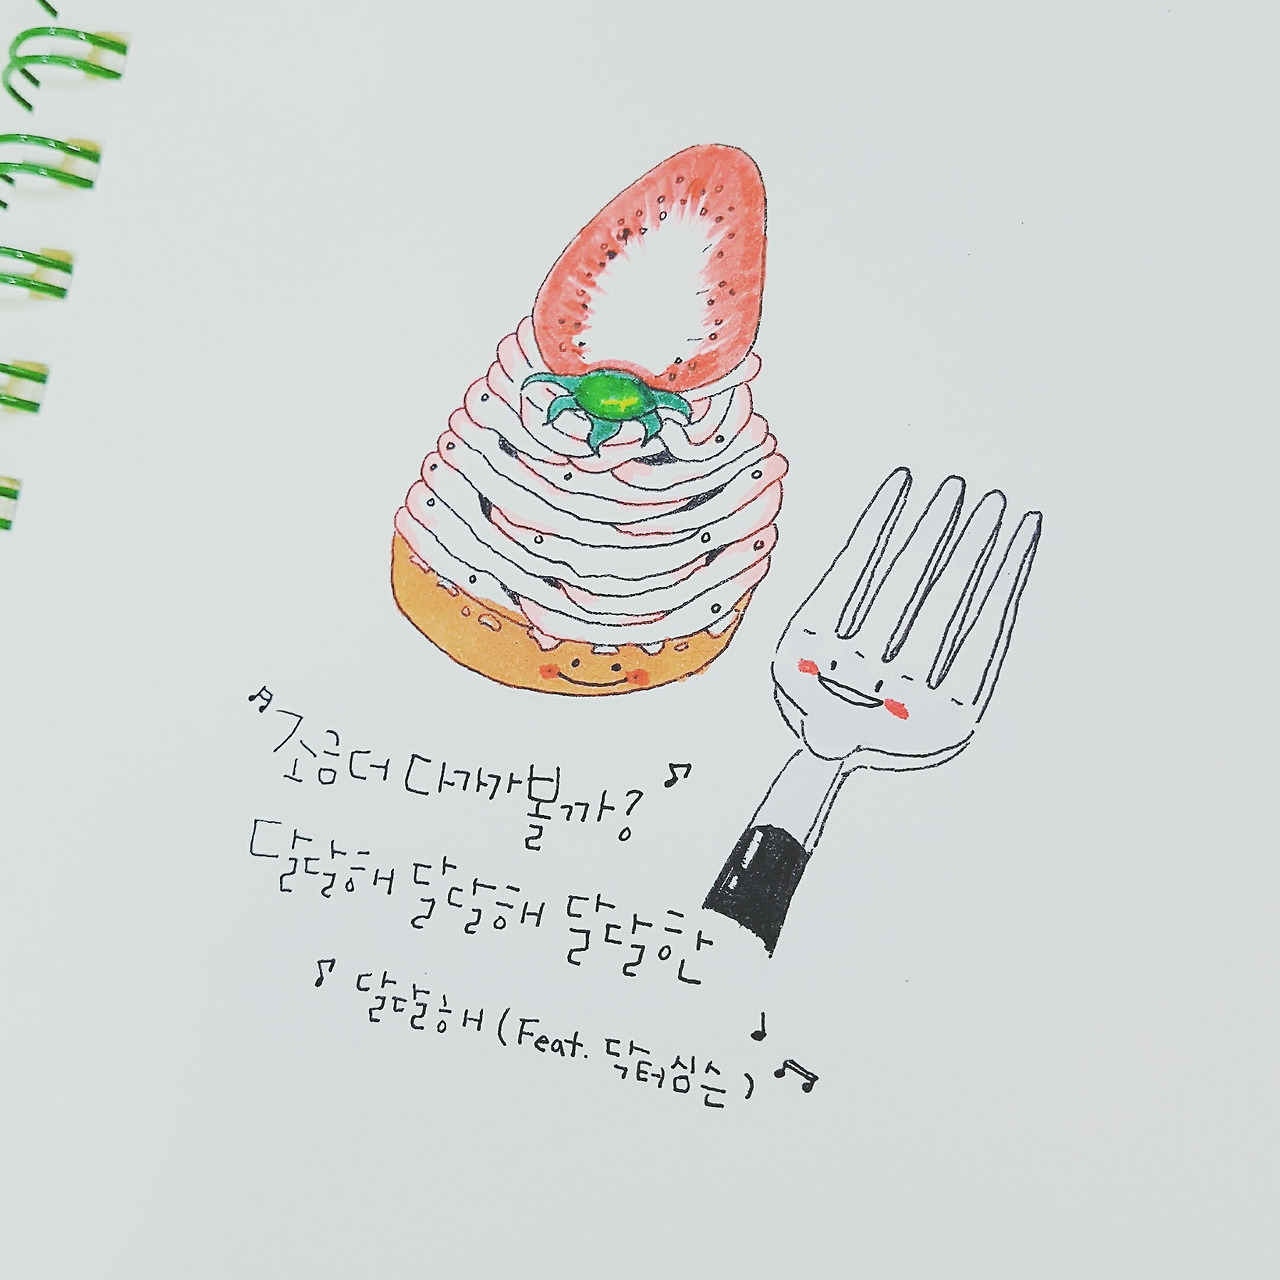 ♬조금더 다가가볼까? ♫
달달해 달달해 달달한
♪ 달달해 (Feat. 닥터심슨) ♩ ♫